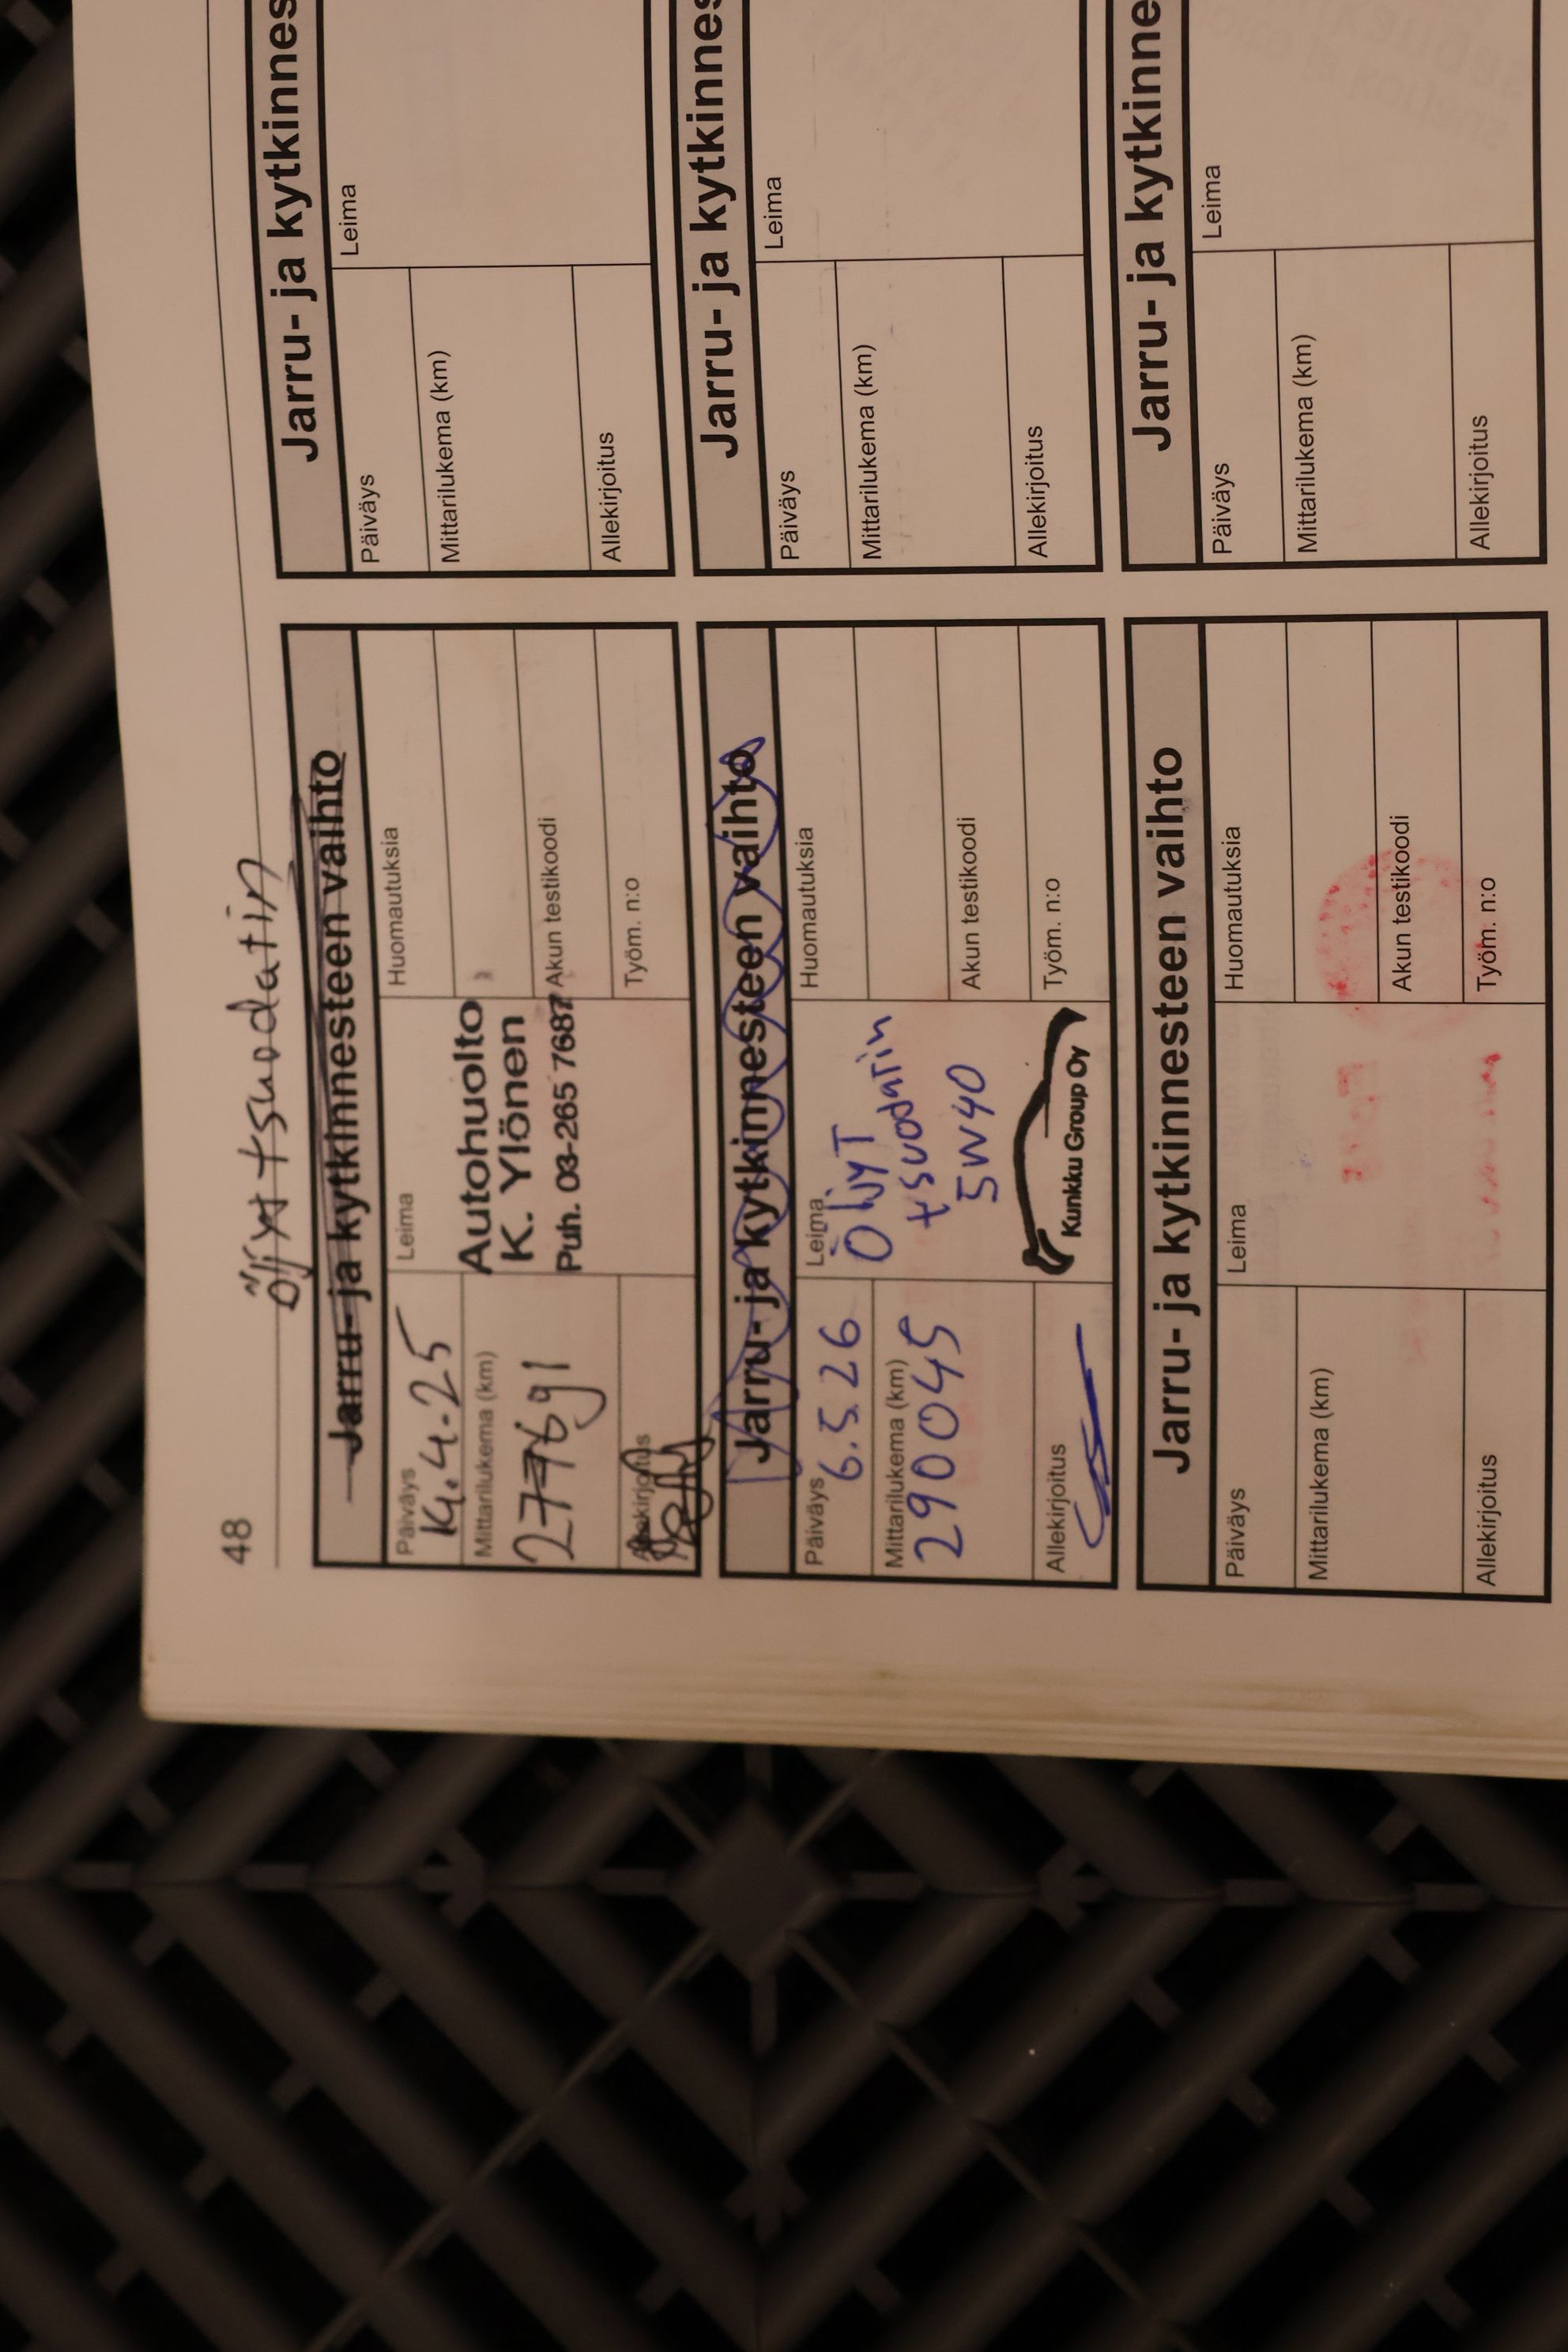 48
öljyt + suodatin
Jarru- ja kytkinnesteen vaihto
Päiväys
14.4.25
Mittarilukema (km)
277691
Allekirjoitus
Leima
Autohuolto
K. Ylönen
Puh. 03-265 7687
Huomautuksia
Akun testikoodi
Työm. n:o
Jarru- ja kytkinnesteen vaihto
Päiväys
6.5.26
Mittarilukema (km)
290045
Allekirjoitus
Leima
ÖljyT
+suodatin
5W40
Kunkku Group Oy
Huomautuksia
Akun testikoodi
Työm. n:o
Jarru- ja kytkinnesteen vaihto
Päiväys
Mittarilukema (km)
Allekirjoitus
Leima
Huomautuksia
Akun testikoodi
Työm. n:o
Jarru- ja kytkinnes
Päiväys
Mittarilukema (km)
Allekirjoitus
Leima
Jarru- ja kytkinnes
Päiväys
Mittarilukema (km)
Allekirjoitus
Leima
Jarru- ja kytkinne
Päiväys
Mittarilukema (km)
Allekirjoitus
Leima